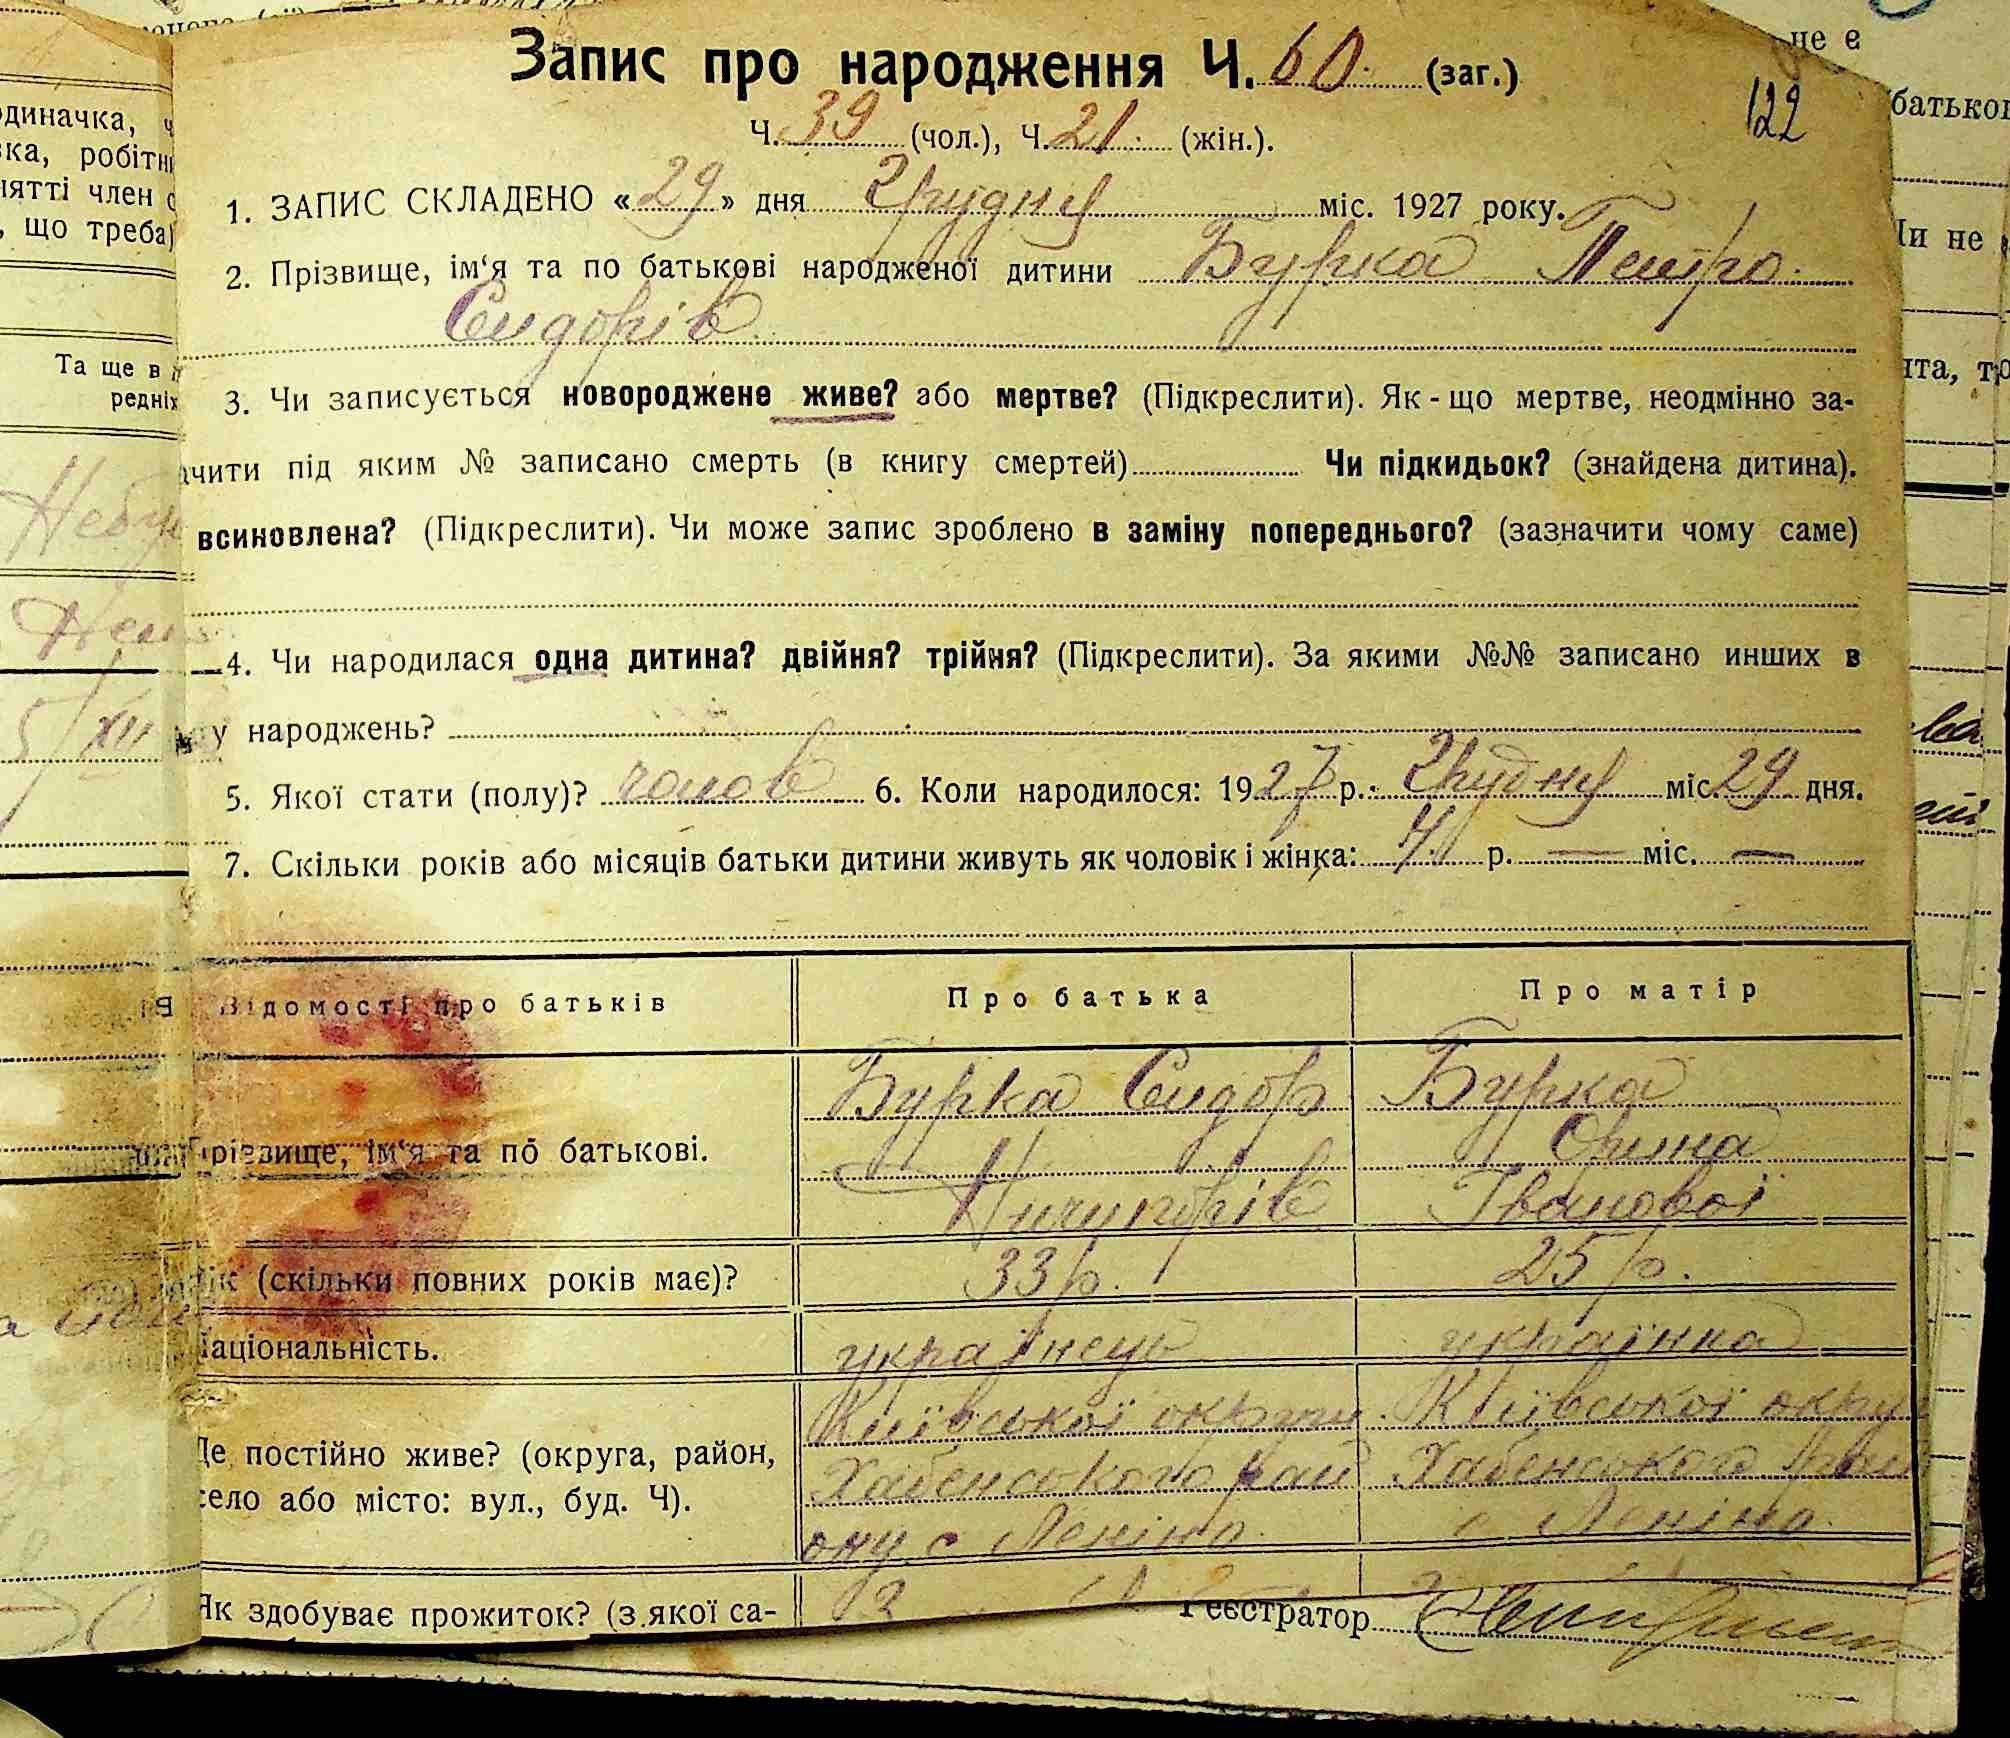 Запис про народження Ч. 60. (заг.)
122
Ч. 39 (чол.), Ч. 21. (жін.).
1. ЗАПИС СКЛАДЕНО « 29 » дня Грудня міс. 1927 року.
2. Прізвище, ім‘я та по батькові народженої дитини Бурка Петро.
Сидорів
3. Чи записується новороджене живе? або мертве? (Підкреслити). Як-що мертве, неодмінно за-
чити під яким № записано смерть (в книгу смертей) Чи підкидьок? (знайдена дитина).
всиновлена? (Підкреслити). Чи може запис зроблено в заміну попереднього? (зазначити чому саме)
4. Чи народилася одна дитина? двійня? трійня? (Підкреслити). За якими №№ записано инших в
у народжень?
5. Якої стати (полу)? чолов 6. Коли народилося: 1927 р. Грудня міс. 29 дня.
7. Скільки років або місяців батьки дитини живуть як чоловік і жінка: р. — міс. —
Відомості про батьків Про батька Про матір
Бурка Сидор Бурка
Прізвище, ім‘я та по батькові. Орина
Іванової
Вік (скільки повних років має)? 33 р. 25 р.
Національність. українець українка
Київської округи Київської окру
Де постійно живе? (округа, район, Хабенського рай Хабенського рай
село або місто: вул., буд. Ч). ону с Леніно. с Леніно.
Як здобуває прожиток? (з якої са-
Реєстратор
одиначка, ч
вка, робітн
нятті член с
, що треба)
Та ще в
редніх
5/XII
це є
батьков
Чи не